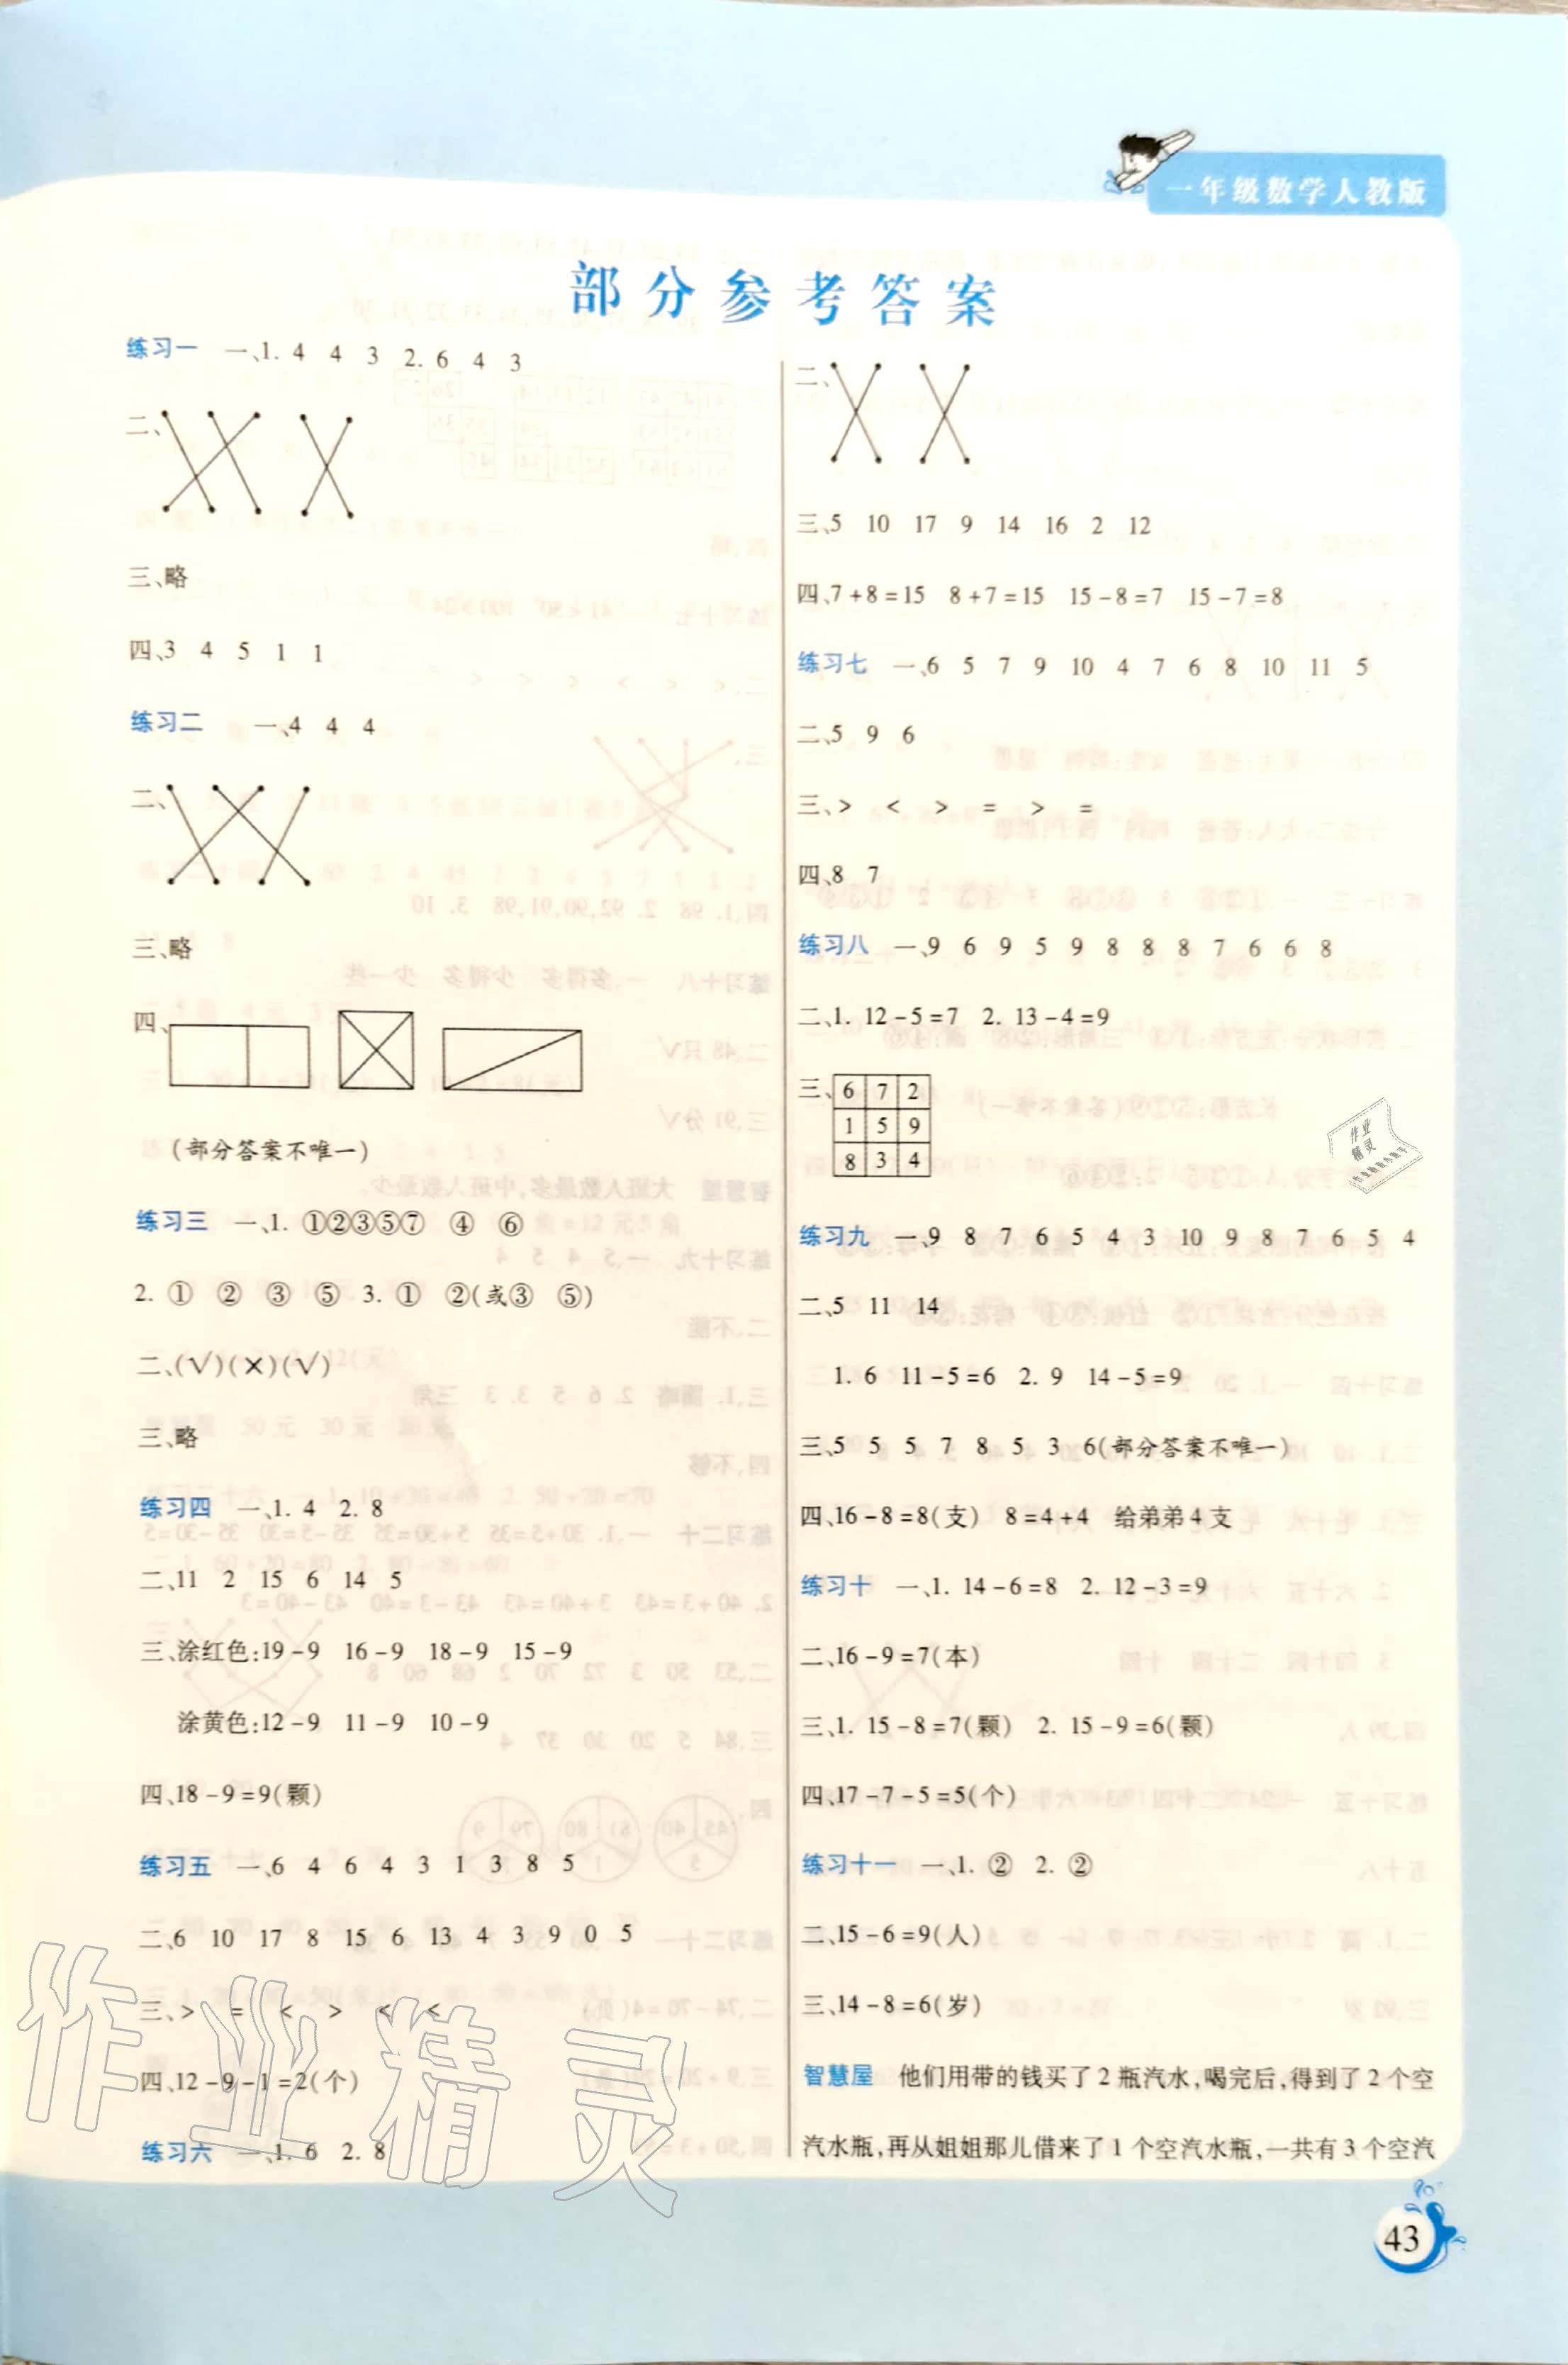 一年级数学人教版
部分参考答案
练习一 一、1. 4 4 3 2. 6 4 3
二、
三、略
四、3 4 5 1 1
练习二 一、4 4 4
二、
三、略
四、
(部分答案不唯一)
练习三 一、1. ①②③⑤⑦ ④ ⑥
2. ① ② ③ ⑤ 3. ① ②(或③ ⑤)
二、(√)(×)(√)
三、略
练习四 一、1. 4 2. 8
二、11 2 15 6 14 5
三、涂红色:19-9 16-9 18-9 15-9
涂黄色:12-9 11-9 10-9
四、18-9=9(颗)
练习五 一、6 4 6 4 3 1 3 8 5
二、6 10 17 8 15 6 13 4 3 9 0 5
三、> = < > < <
四、12-9-1=2(个)
练习六 一、1. 6 2. 8
二、
三、5 10 17 9 14 16 2 12
四、7+8=15 8+7=15 15-8=7 15-7=8
练习七 一、6 5 7 9 10 4 7 6 8 10 11 5
二、5 9 6
三、> < > = > =
四、8 7
练习八 一、9 6 9 5 9 8 8 8 7 6 6 8
二、1. 12-5=7 2. 13-4=9
三、6 7 2
1 5 9
8 3 4
练习九 一、9 8 7 6 5 4 3 10 9 8 7 6 5 4
二、5 11 14
1. 6 11-5=6 2. 9 14-5=9
三、5 5 5 7 8 5 3 6(部分答案不唯一)
四、16-8=8(支) 8=4+4 给弟弟4支
练习十 一、1. 14-6=8 2. 12-3=9
二、16-9=7(本)
三、1. 15-8=7(颗) 2. 15-9=6(颗)
四、17-7-5=5(个)
练习十一 一、1. ② 2. ②
二、15-6=9(人)
三、14-8=6(岁)
智慧屋 他们用带的钱买了2瓶汽水,喝完后,得到了2个空
汽水瓶,再从姐姐那儿借来了1个空汽水瓶,一共有3个空汽
43
作业精灵
作业
精灵